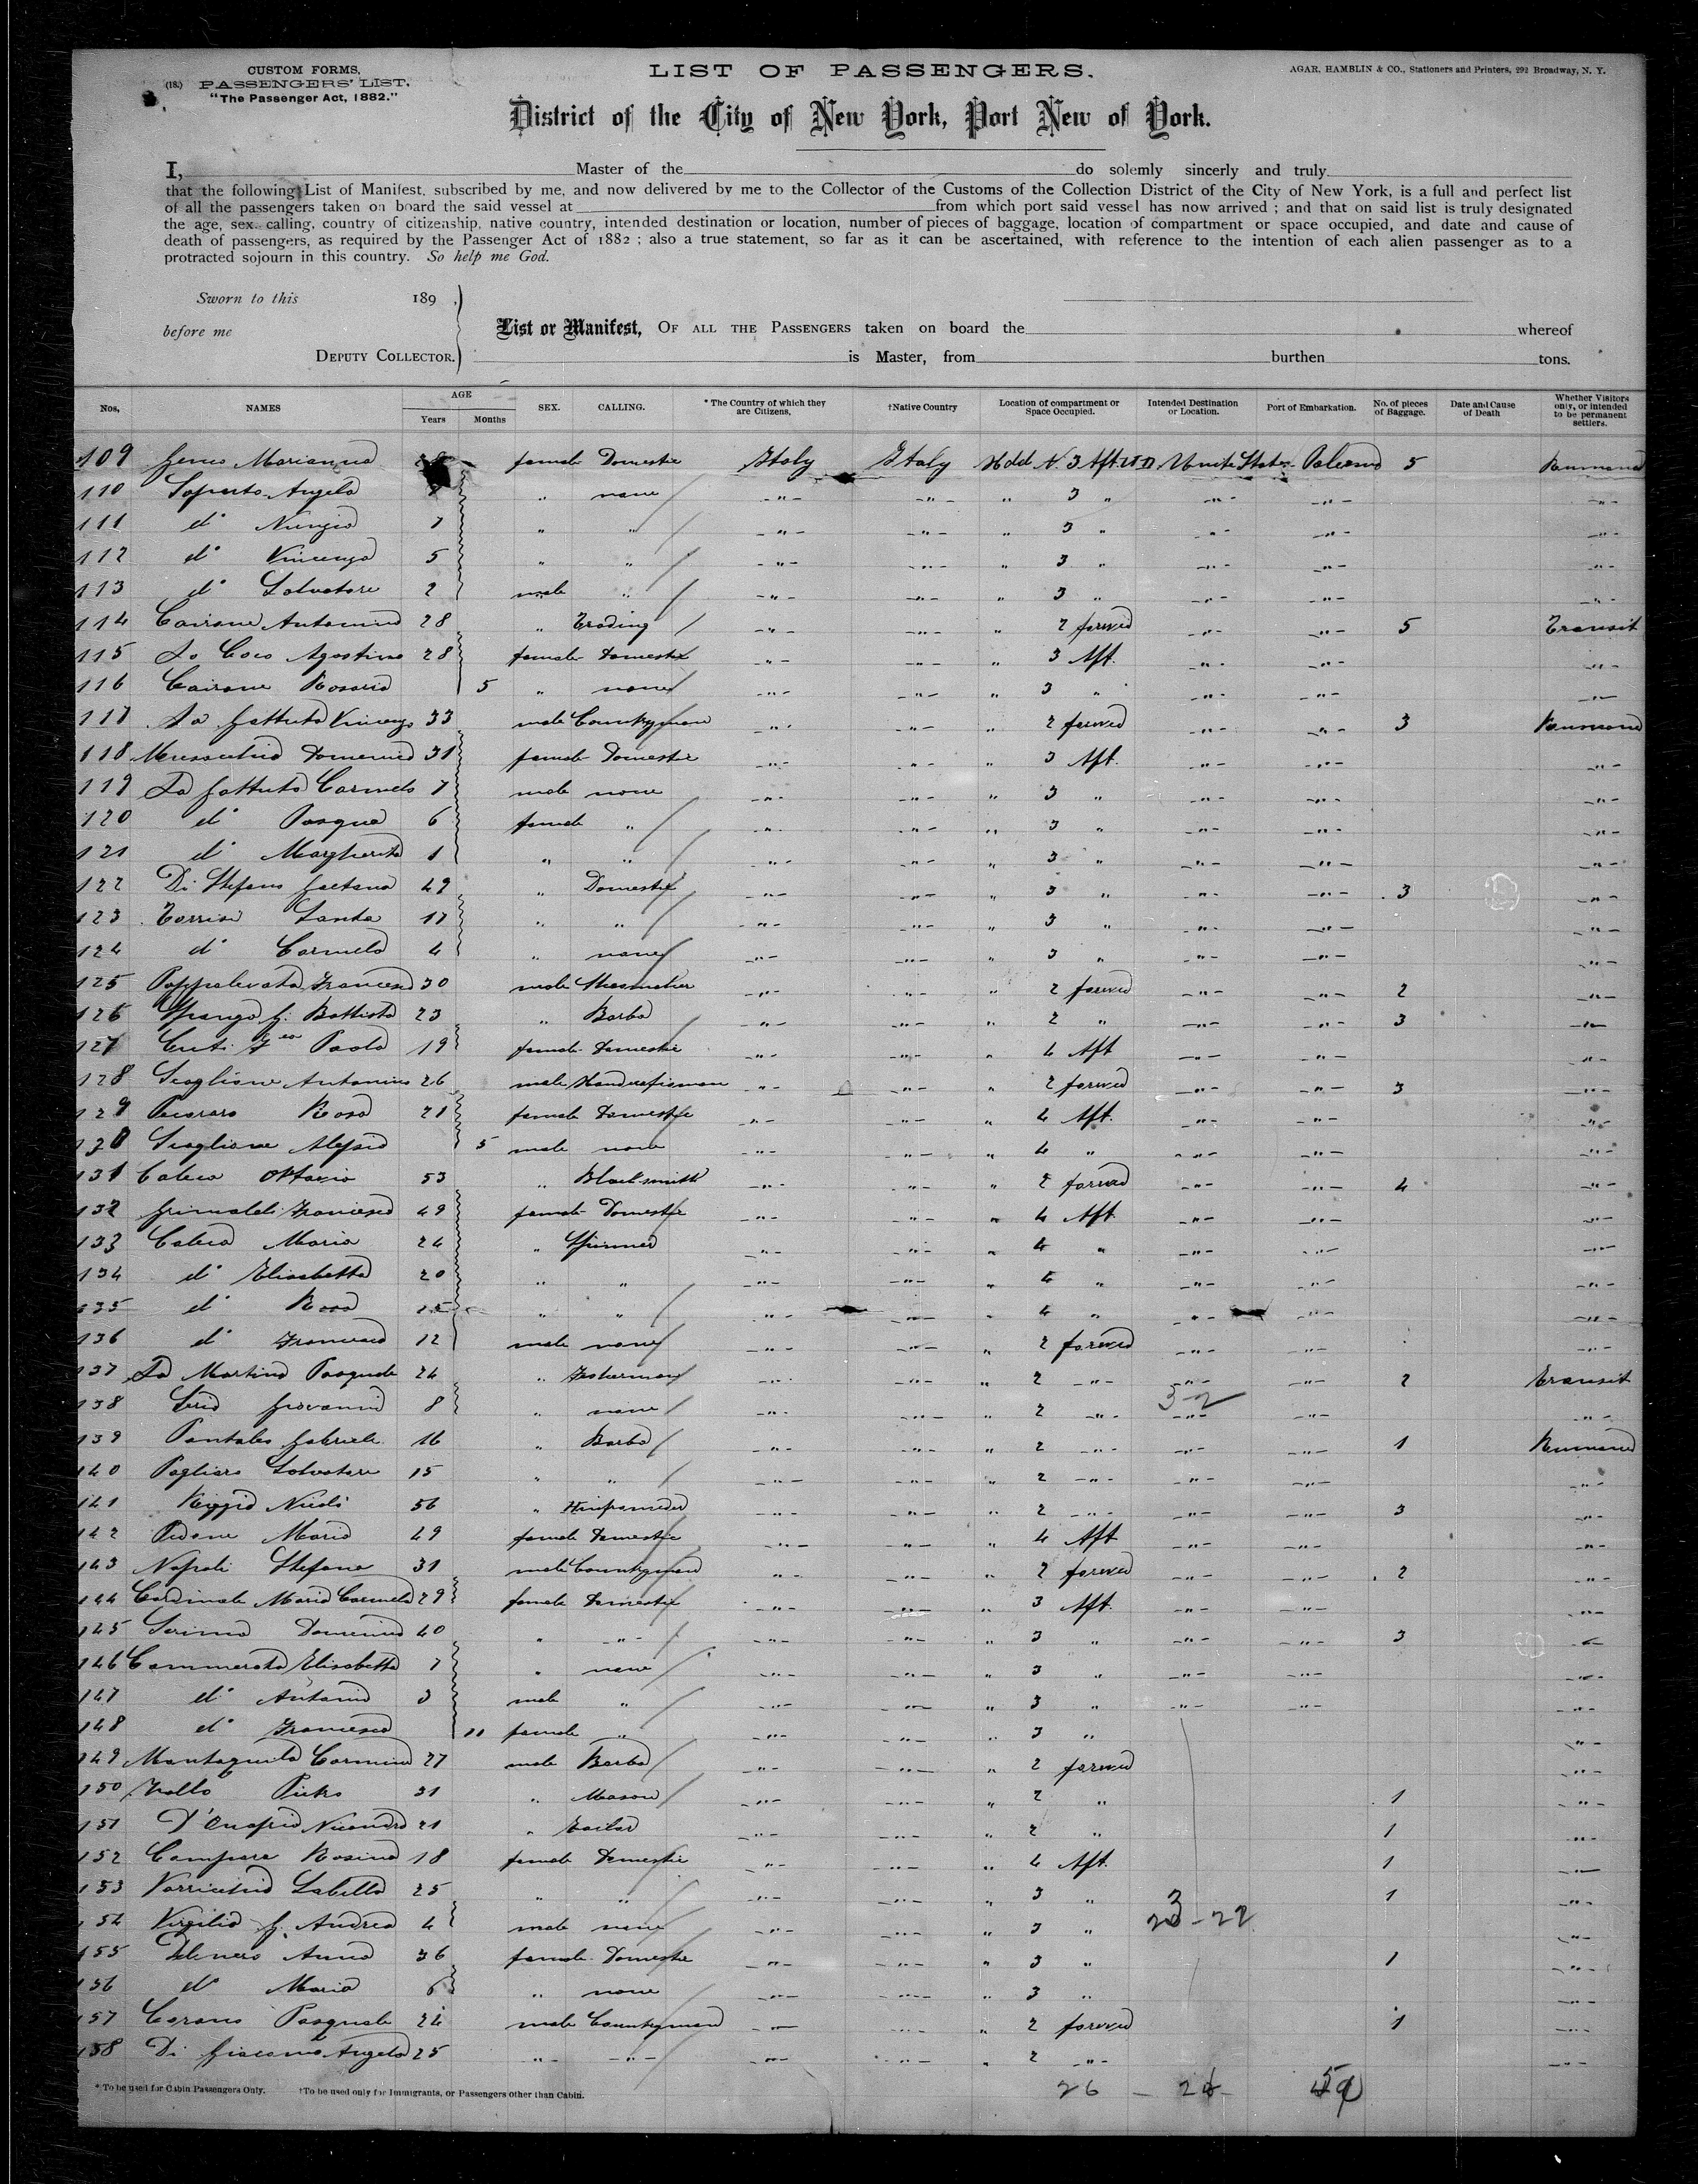 CUSTOM FORMS,
(18.) PASSENGERS' LIST.
"The Passenger Act, 1882."
LIST OF PASSENGERS.
AGAR, HAMBLIN & CO., Stationers and Printers, 292 Broadway, N. Y.
District of the City of New York, Port New of York.
I, Master of the do solemly sincerly and truly
that the following List of Manifest, subscribed by me, and now delivered by me to the Collector of the Customs of the Collection District of the City of New York, is a full and perfect list
of all the passengers taken on board the said vessel at from which port said vessel has now arrived ; and that on said list is truly designated
the age, sex, calling, country of citizenship, native country, intended destination or location, number of pieces of baggage, location of compartment or space occupied, and date and cause of
death of passengers, as required by the Passenger Act of 1882 ; also a true statement, so far as it can be ascertained, with reference to the intention of each alien passenger as to a
protracted sojourn in this country. So help me God.
Sworn to this 189
before me
DEPUTY COLLECTOR.
List or Manifest, OF ALL THE PASSENGERS taken on board the whereof
is Master, from burthen tons.
Nos, NAMES AGE Years Months SEX. CALLING. * The Country of which they are Citizens, †Native Country Location of compartment or Space Occupied. Intended Destination or Location. Port of Embarkation. No. of pieces of Baggage. Date and Cause of Death Whether Visitors only, or intended to be permanent settlers.
109 Marianna female Domestic Italy Italy 3 Aft Unite States Palermo 5
110 Angela " none -"- -"- " 3 " -"- -"- -"-
111 d° Nunzia 7 " " -"- -"- " 3 " -"- -"- -"-
112 d° Vincenza 5 " " -"- -"- " 3 " -"- -"- -"-
113 d° Salvatore 2 male " -"- -"- " 3 " -"- -"- -"-
114 Cairone Antonino 28 " Trading -"- -"- " 2 forwed -"- -"- 5 Transit
115 Lo Coco Agostina 28 female Domestic -"- -"- " 3 Aft. -"- -"- -"-
116 Cairone Rosaria 5 " none -"- -"- " 3 " -"- -"- -"-
117 La Gattuta Vincenzo 33 male Countryman -"- -"- " 2 forwed -"- -"- 3
118 Domenica 31 female Domestic -"- -"- " 3 Aft. -"- -"- -"-
119 La Gattuta Carmelo 7 male none -"- -"- " 3 " -"- -"- -"-
120 d° Pasqua 6 female " -"- -"- " 3 " -"- -"- -"-
121 d° Margherita 1 " " -"- -"- " 3 " -"- -"- -"-
122 Di Stefano Gaetana 49 " Domestic -"- -"- " 3 " -"- -"- 3 -"-
123 Torrisi Santa 17 " " -"- -"- " 3 " -"- -"- -"-
124 d° Carmela 4 " none -"- -"- " 3 " -"- -"- -"-
125 Francesco 30 male Shoemaker -"- -"- " 2 forwed -"- -"- 2 -"-
126 G. Battista 23 " Barba -"- -"- " 2 " -"- -"- 3 -"-
127 Paola 19 female Domestic -"- -"- " 4 Aft -"- -"- -"-
128 Scaglione Antonino 26 male -"- -"- " 2 forwed -"- -"- 3 -"-
129 Pecoraro Rosa 21 female Domestic -"- -"- " 4 Aft. -"- -"- -"-
130 Scaglione Alessio 5 male none -"- -"- " 4 " -"- -"- -"-
131 Caleca Ottavio 53 " Blacksmith -"- -"- " 2 forwed -"- -"- 4 -"-
132 Grimaldi Francesca 49 female Domestic -"- -"- " 4 Aft. -"- -"- -"-
133 Caleca Maria 24 " Spinner -"- -"- " 4 " -"- -"- -"-
134 d° Elisabetta 20 " " -"- -"- " 4 " -"- -"- -"-
135 d° Rosa 15 " " -"- -"- " 4 " -"- -"- -"-
136 d° Francesco 12 male none -"- -"- " 2 forwed -"- -"- -"-
137 La Martina Pasquale 24 " Fisherman -"- -"- " 2 -"- -"- -"- 2 Transit
138 Giovanni 8 " none -"- -"- " 2 -"- -"- -"-
32
139 Pantaleo Gabriele 16 " Barba -"- -"- " 2 -"- -"- -"- 1
140 Pagliaro Salvatore 15 " " -"- -"- " 2 -"- -"- -"-
141 Nicolò 56 " -"- -"- " 2 -"- -"- -"- 3 -"-
142 Maria 49 female Domestic -"- -"- " 4 Aft -"- -"- -"-
143 Napoli Stefano 31 male Countryman -"- -"- " 2 forwed -"- -"- 2 -"-
144 Cardinale Maria Carmela 29 female Domestic -"- -"- " 3 Aft. -"- -"- -"-
145 Domenica 40 " -"- -"- -"- " 3 " -"- -"- 3
146 Cammarata Elisabetta 7 " none -"- -"- " 3 " -"- -"- -"-
147 d° Antonio 3 male " -"- -"- " 3 " -"- -"- -"-
148 d° Francesca female " -"- -"- " 3 " -"-
149 Carmine 27 male Barba -"- -"- " 2 forwed -"-
150 Pietro 31 " Mason -"- -"- " 2 " 1 -"-
151 D'Onofrio Nicandro 21 " Tailor -"- -"- " 2 " 1 -"-
152 Rosina 18 female Domestic -"- -"- " 4 Aft. 1
153 25 " " -"- -"- " 3 " 1 -"-
154 Virgilio G. Andrea 4 male none -"- -"- " 3 " -"-
155 Anna 36 female Domestic -"- -"- " 3 " 1 -"-
156 d° Maria 6 " none -"- -"- " 3 " -"-
157 Pasquale 24 male Countryman -"- " 2 forwed 1 -"-
158 Di Giacomo Angelo 25 -"- -"- -"- -"- " 2 -"-
* To be used for Cabin Passengers Only. †To be used only for Immigrants, or Passengers other than Cabin.
26